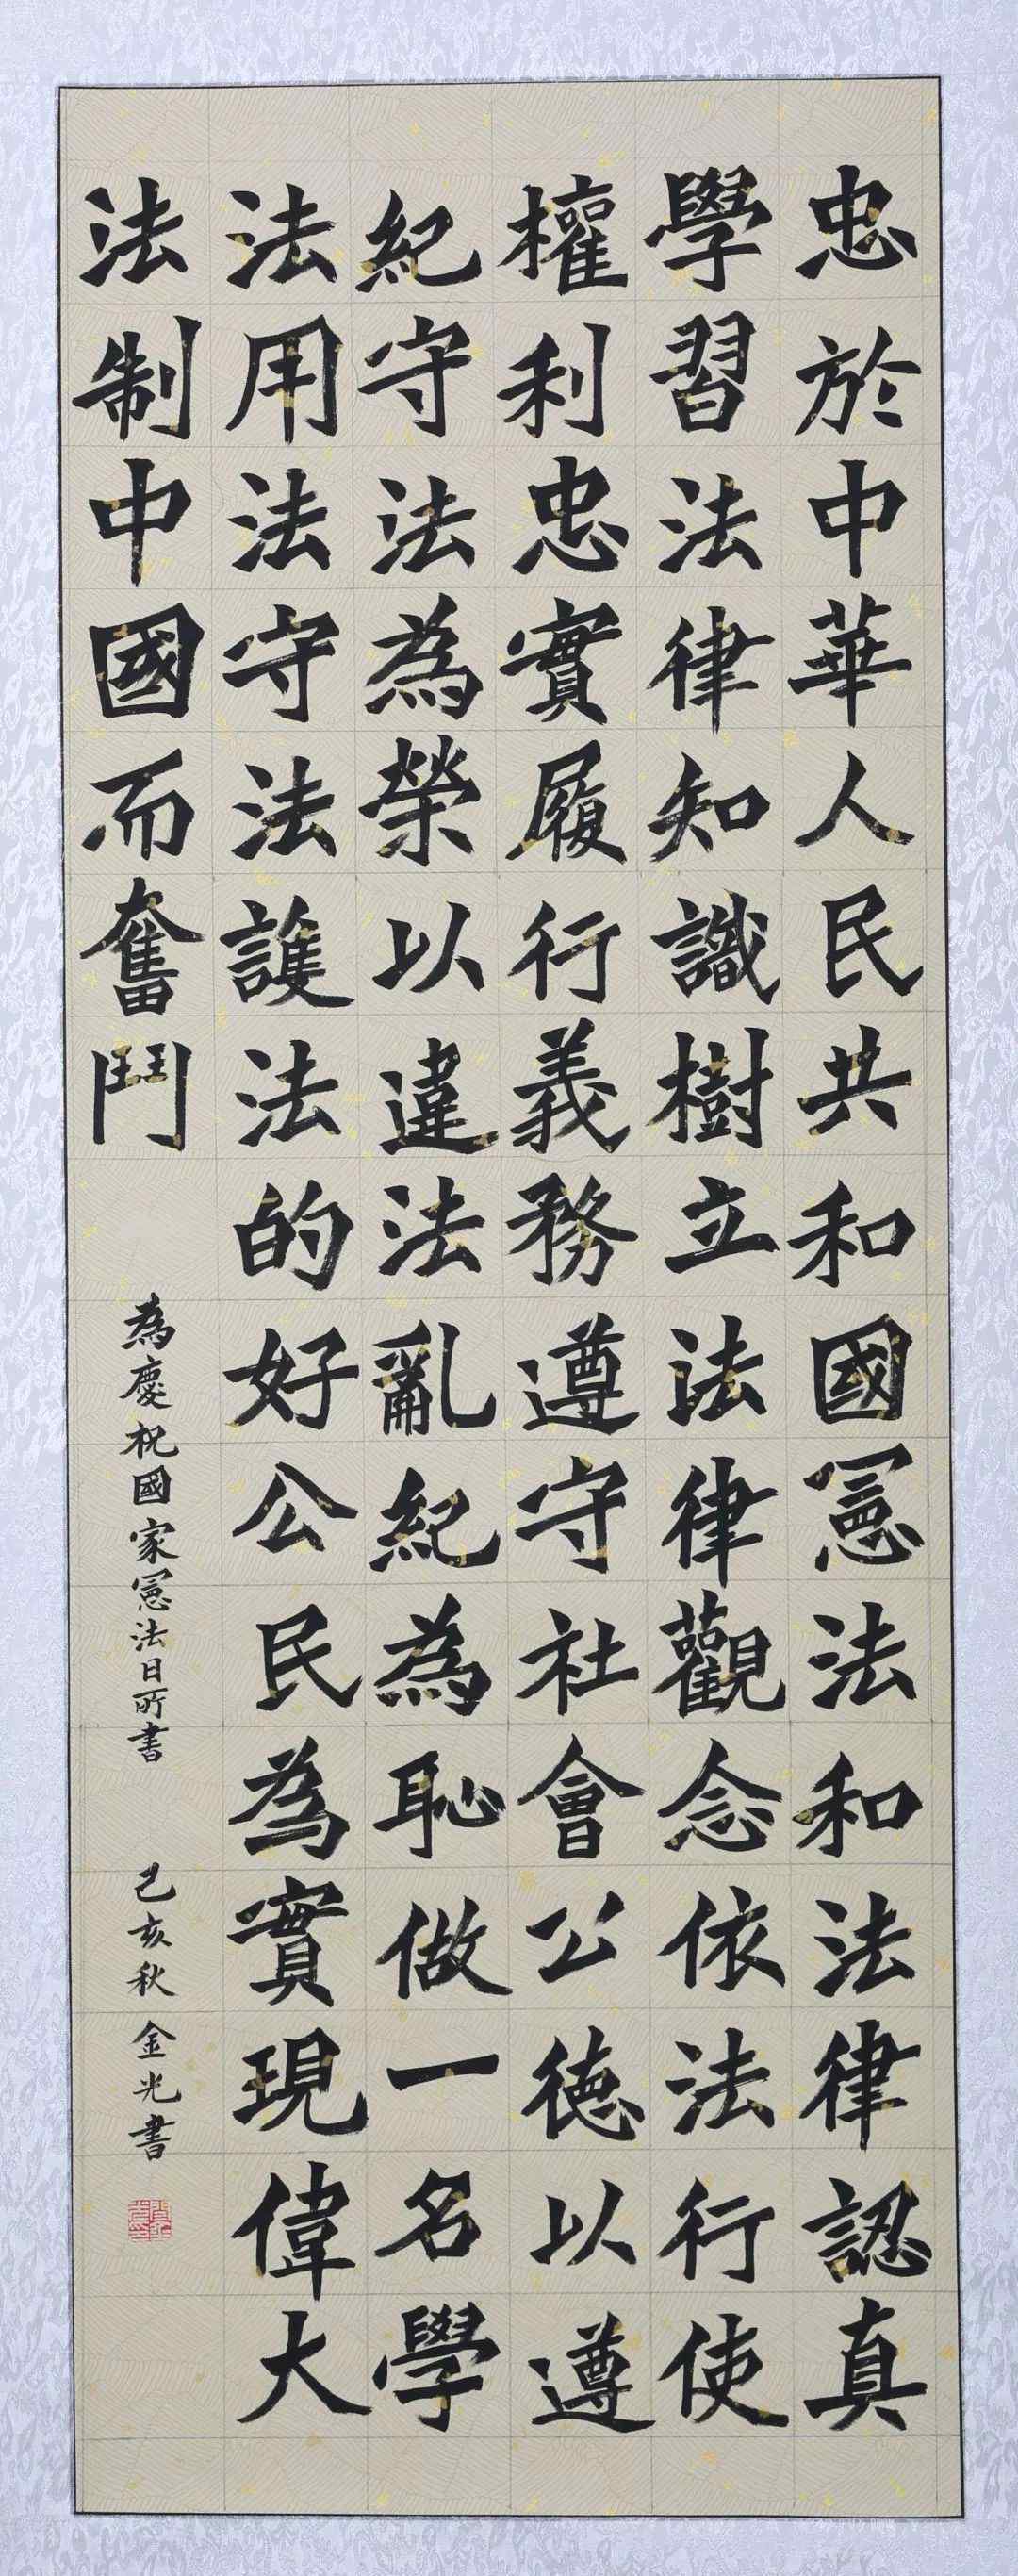 忠於中華人民共和國憲法和法律認真
學習法律知識樹立法律觀念依法行使
權利忠實履行義務遵守社會公德以遵
紀守法為榮以違法亂紀為恥做一名學
法用法守法護法的好公民為實現偉大
法制中國而奮鬥
為慶祝國家憲法日所書
己亥秋金光書